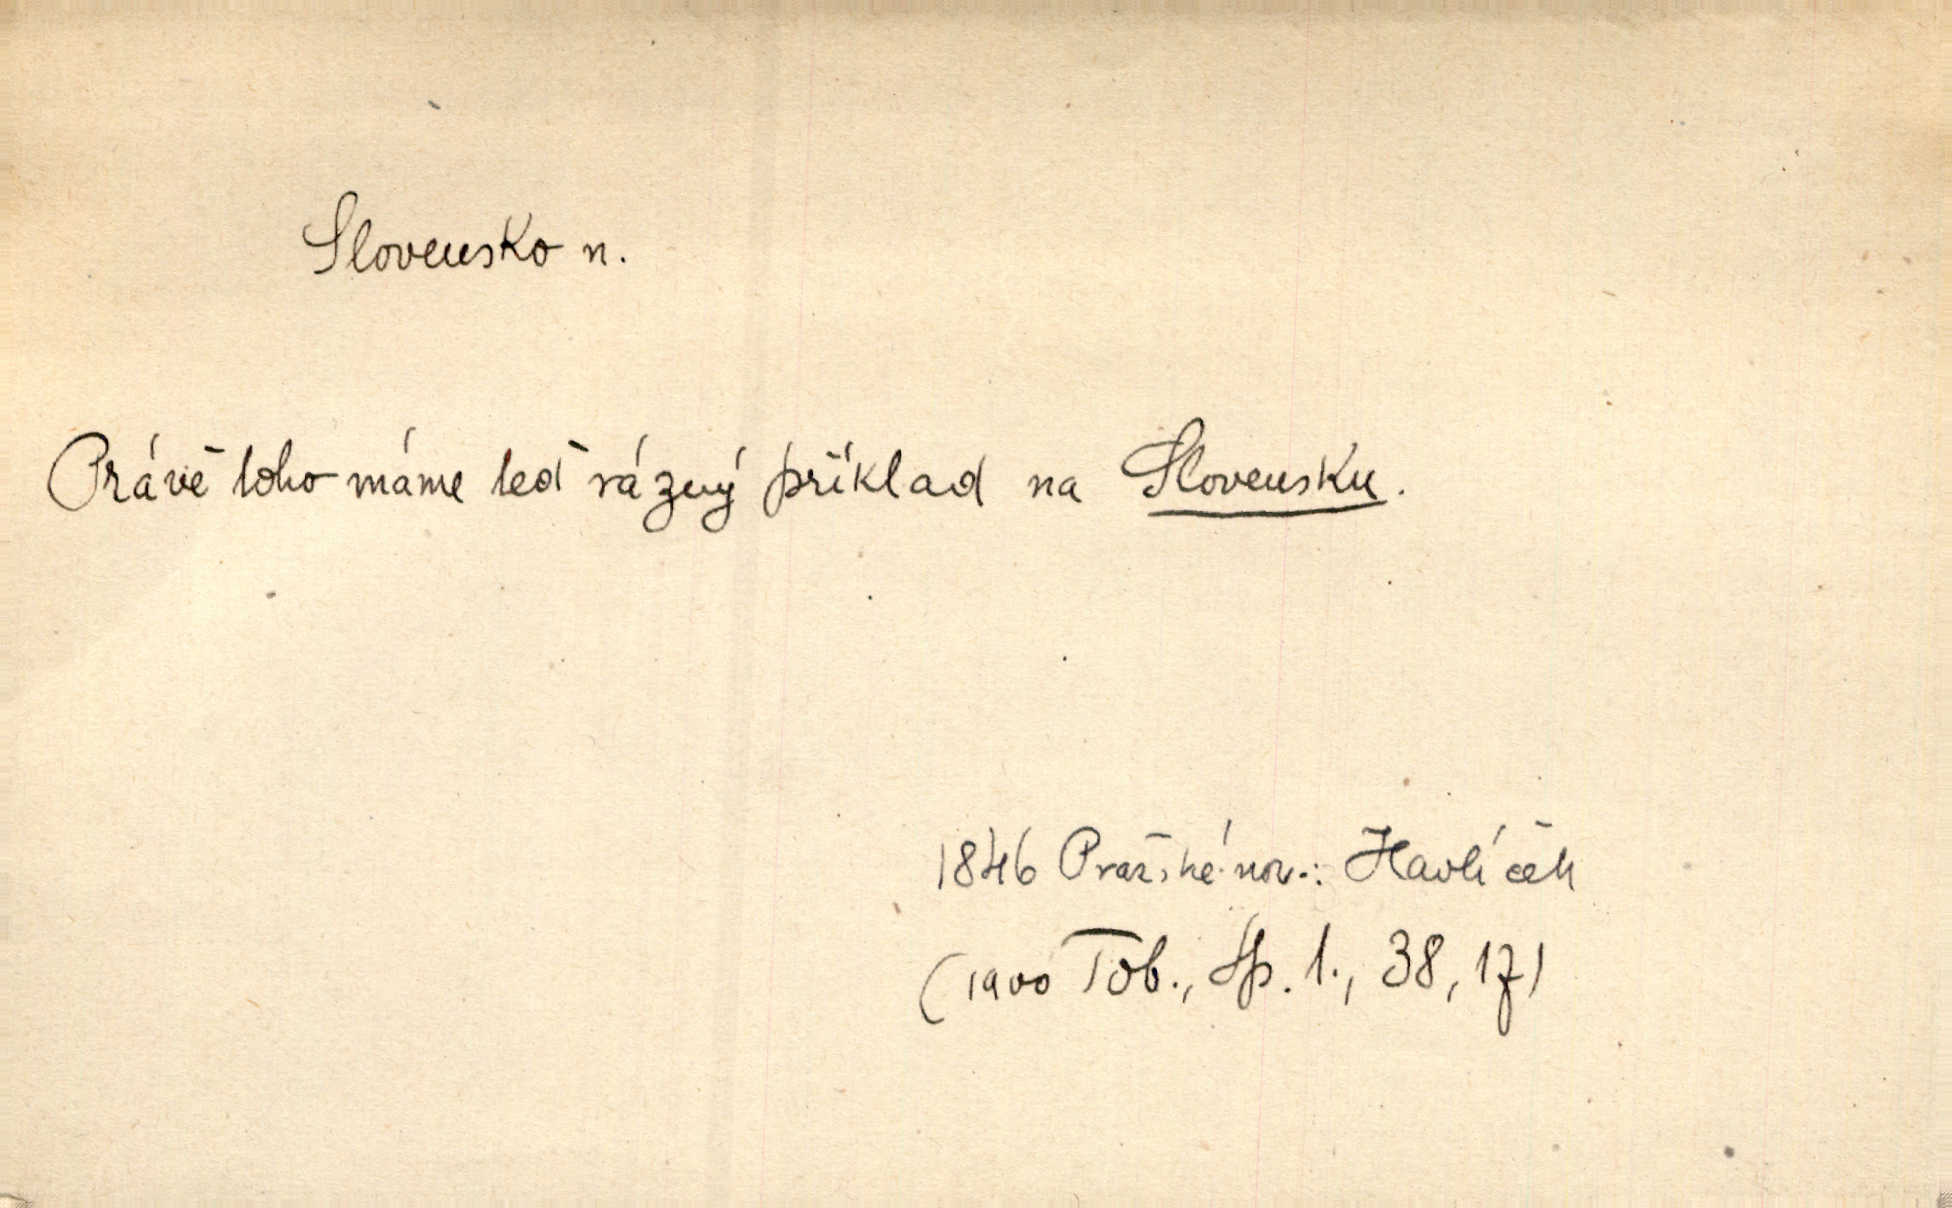 Slovensko n.
Právě toho máme teď rázný příklad na Slovensku.
1846 Pražské nov.: Havlíček
(1900 Tob., Sp. 1., 38, 17)